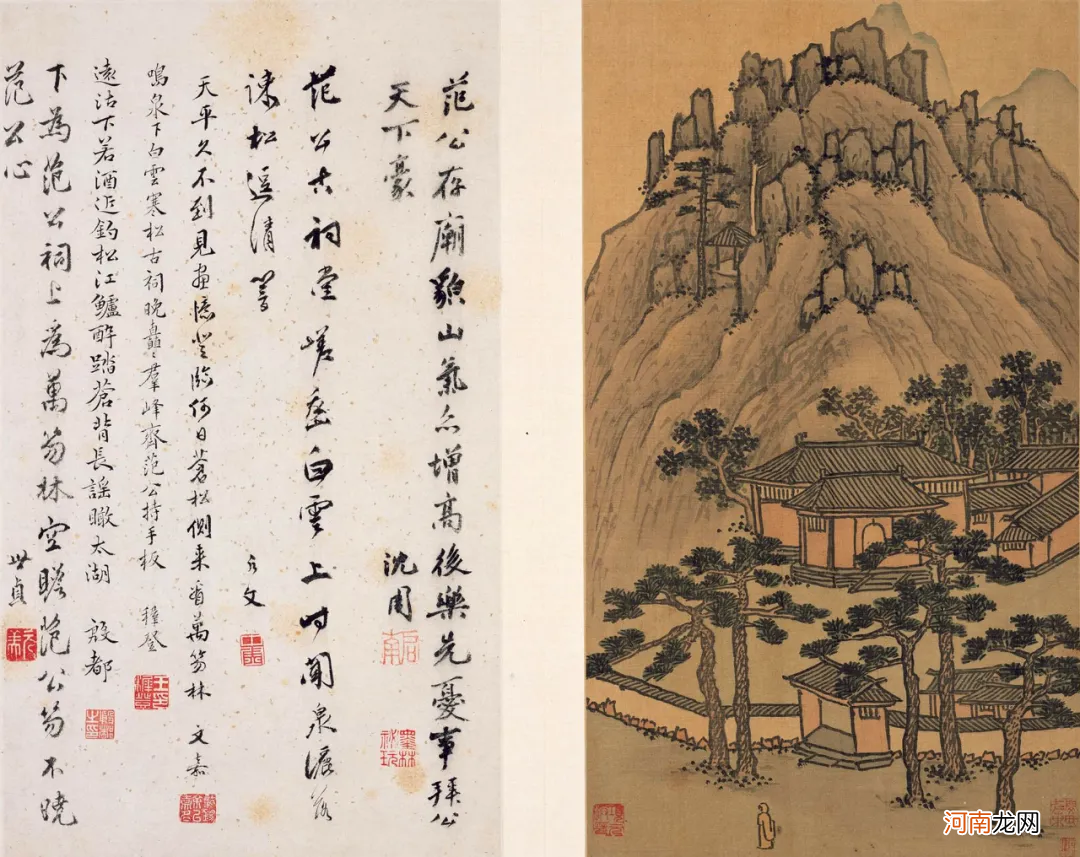 范公存廟貌山氣亦增高後樂先憂事拜公
天下豪 沈周
范公古祠堂 白雲上時聞泉 落
松 清
天平久不到見畫憶登臨何日蒼松側来看萬笏林 文嘉
鳴泉下白雲寒松古祠晚矗矗羣峰齊范公持手板 穉登
遠沽下若酒近釣松江鱸醉踏蒼背長謡瞰太湖 殷都
下為范公祠上為萬笏林空瞻范公笏不曉
范公心 世貞
河南龙网